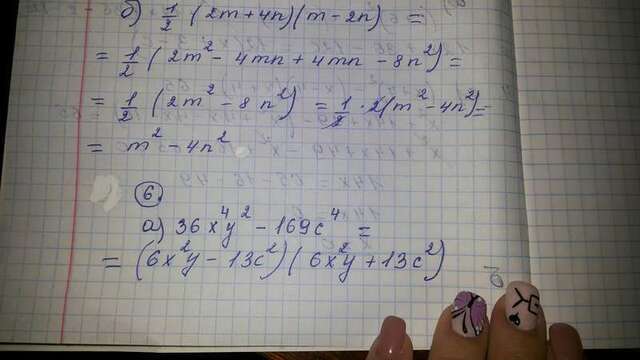 б) 1/2 (2m + 4n)(m − 2n) =
= 1/2 (2m² − 4mn + 4mn − 8n²) =
= 1/2 (2m² − 8n²) = 1/2 · 2(m² − 4n²) =
= m² − 4n²
6.
а) 36x⁴y² − 169c⁴ =
= (6x²y − 13c²)(6x²y + 13c²)